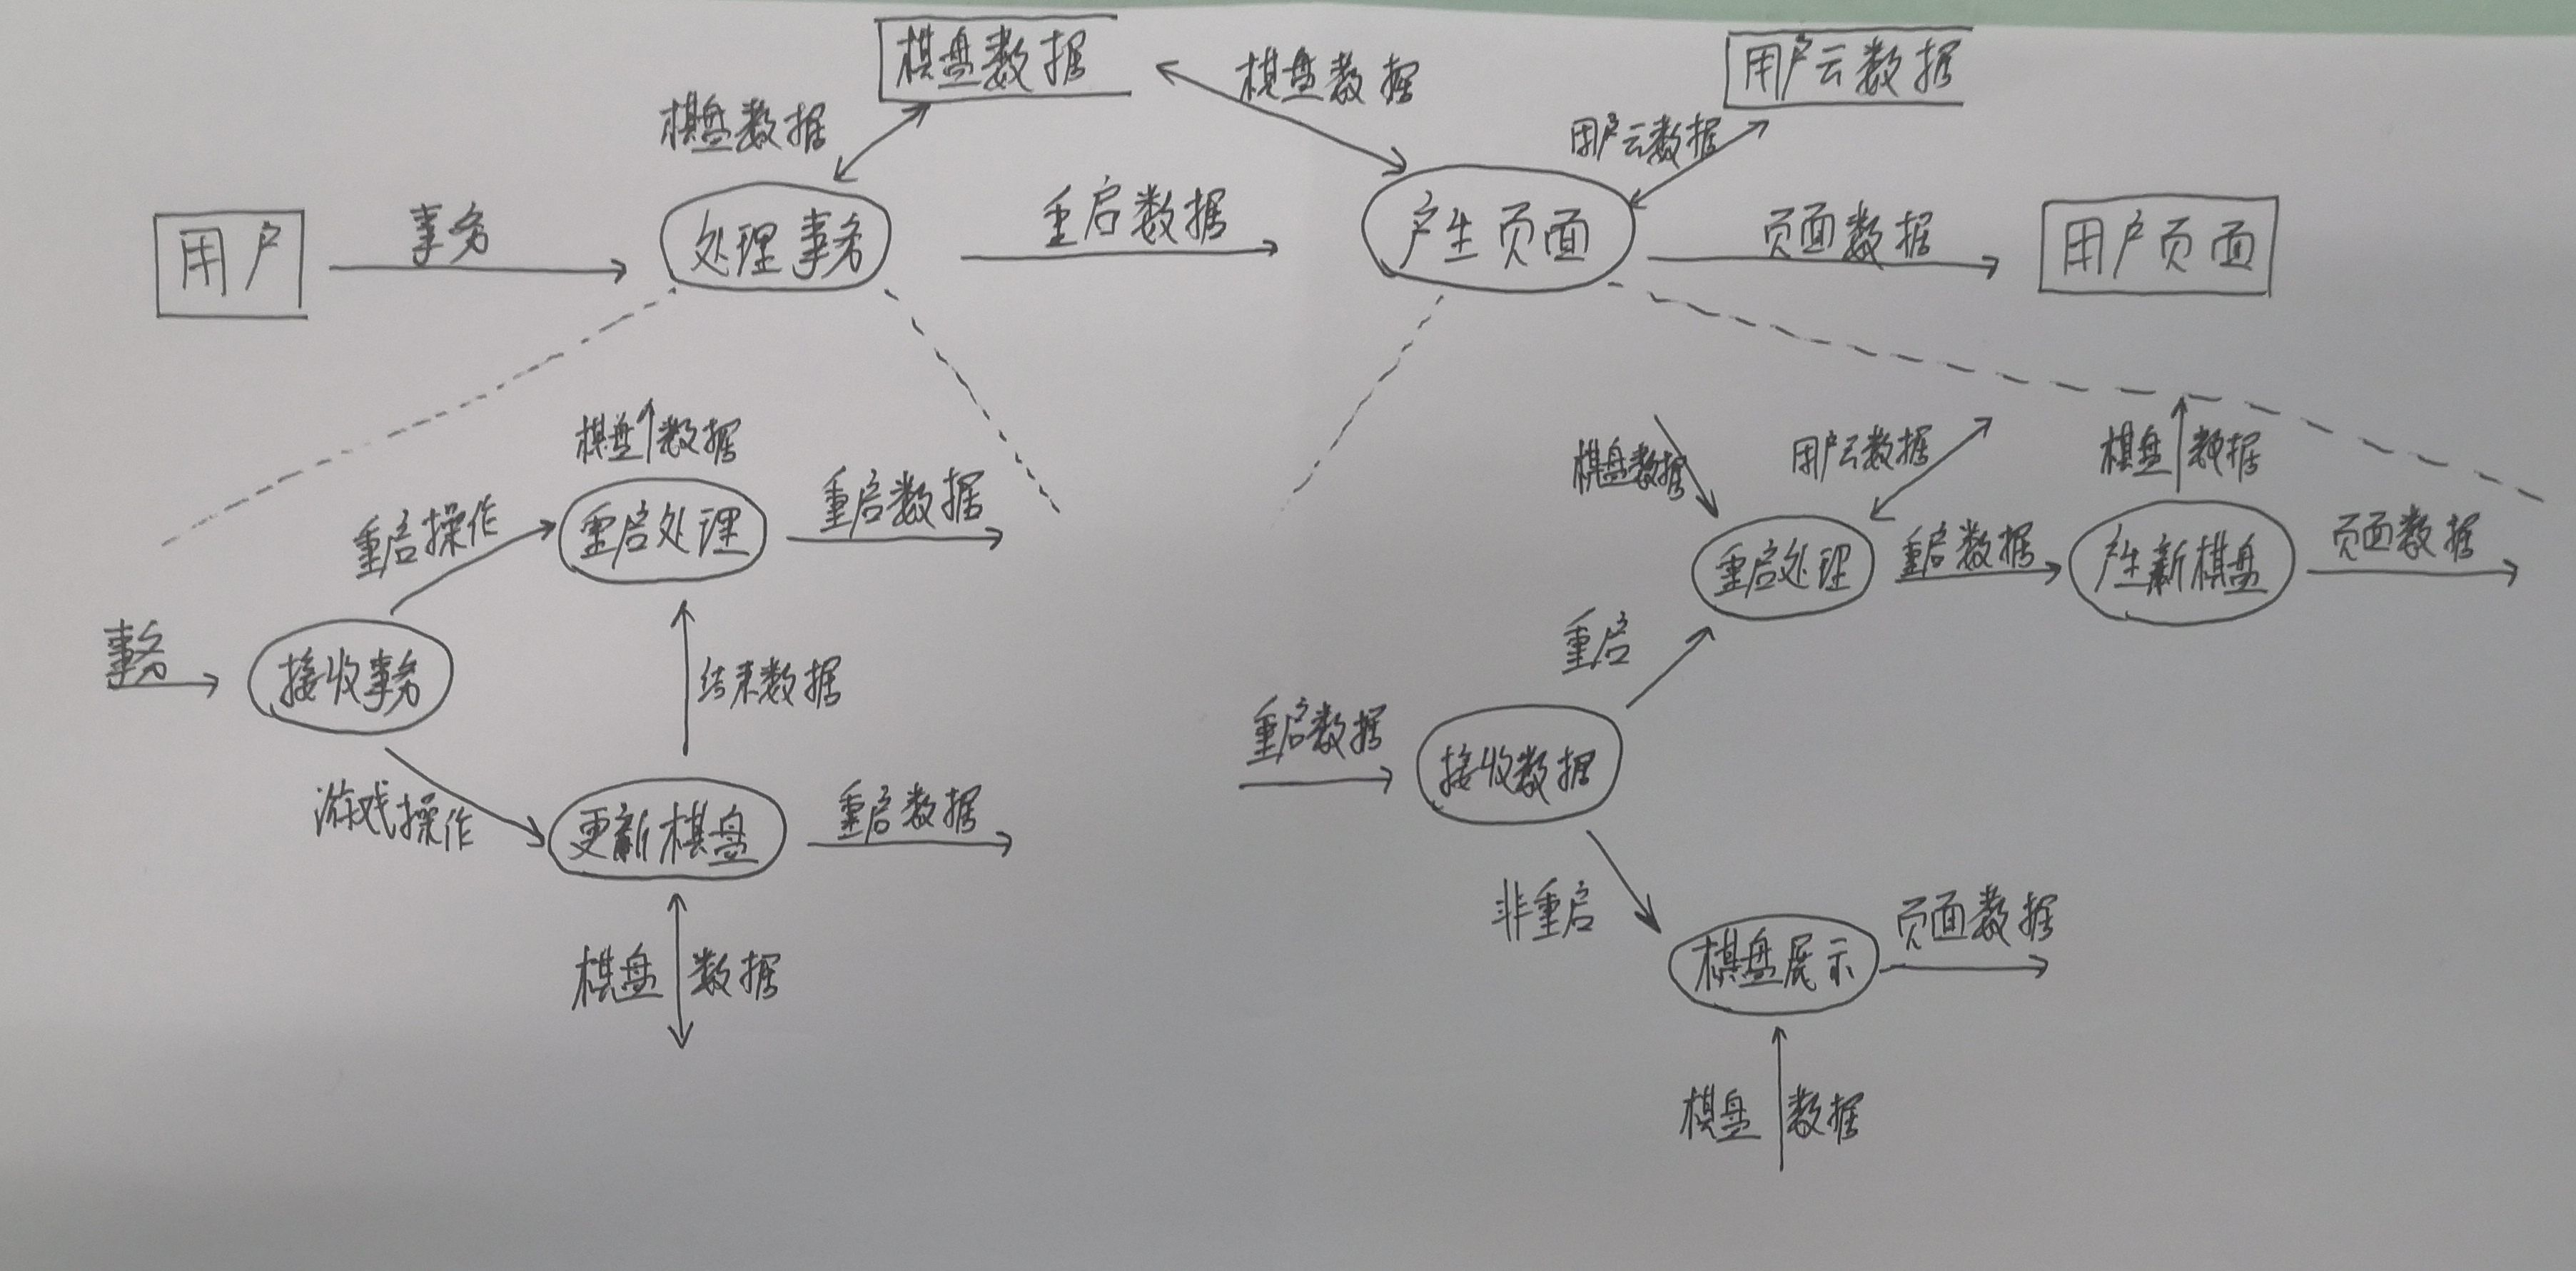 棋盘数据
棋盘数据
用户云数据
棋盘数据
用户云数据
用户
事务
处理事务
重启数据
产生页面
页面数据
用户页面
棋盘数据
重启操作
重启处理
重启数据
事务
接收事务
结束数据
游戏操作
更新棋盘
重启数据
棋盘数据
棋盘数据
用户云数据
棋盘数据
重启处理
重启数据
产生新棋盘
页面数据
重启
重启数据
接收数据
非重启
棋盘展示
页面数据
棋盘数据